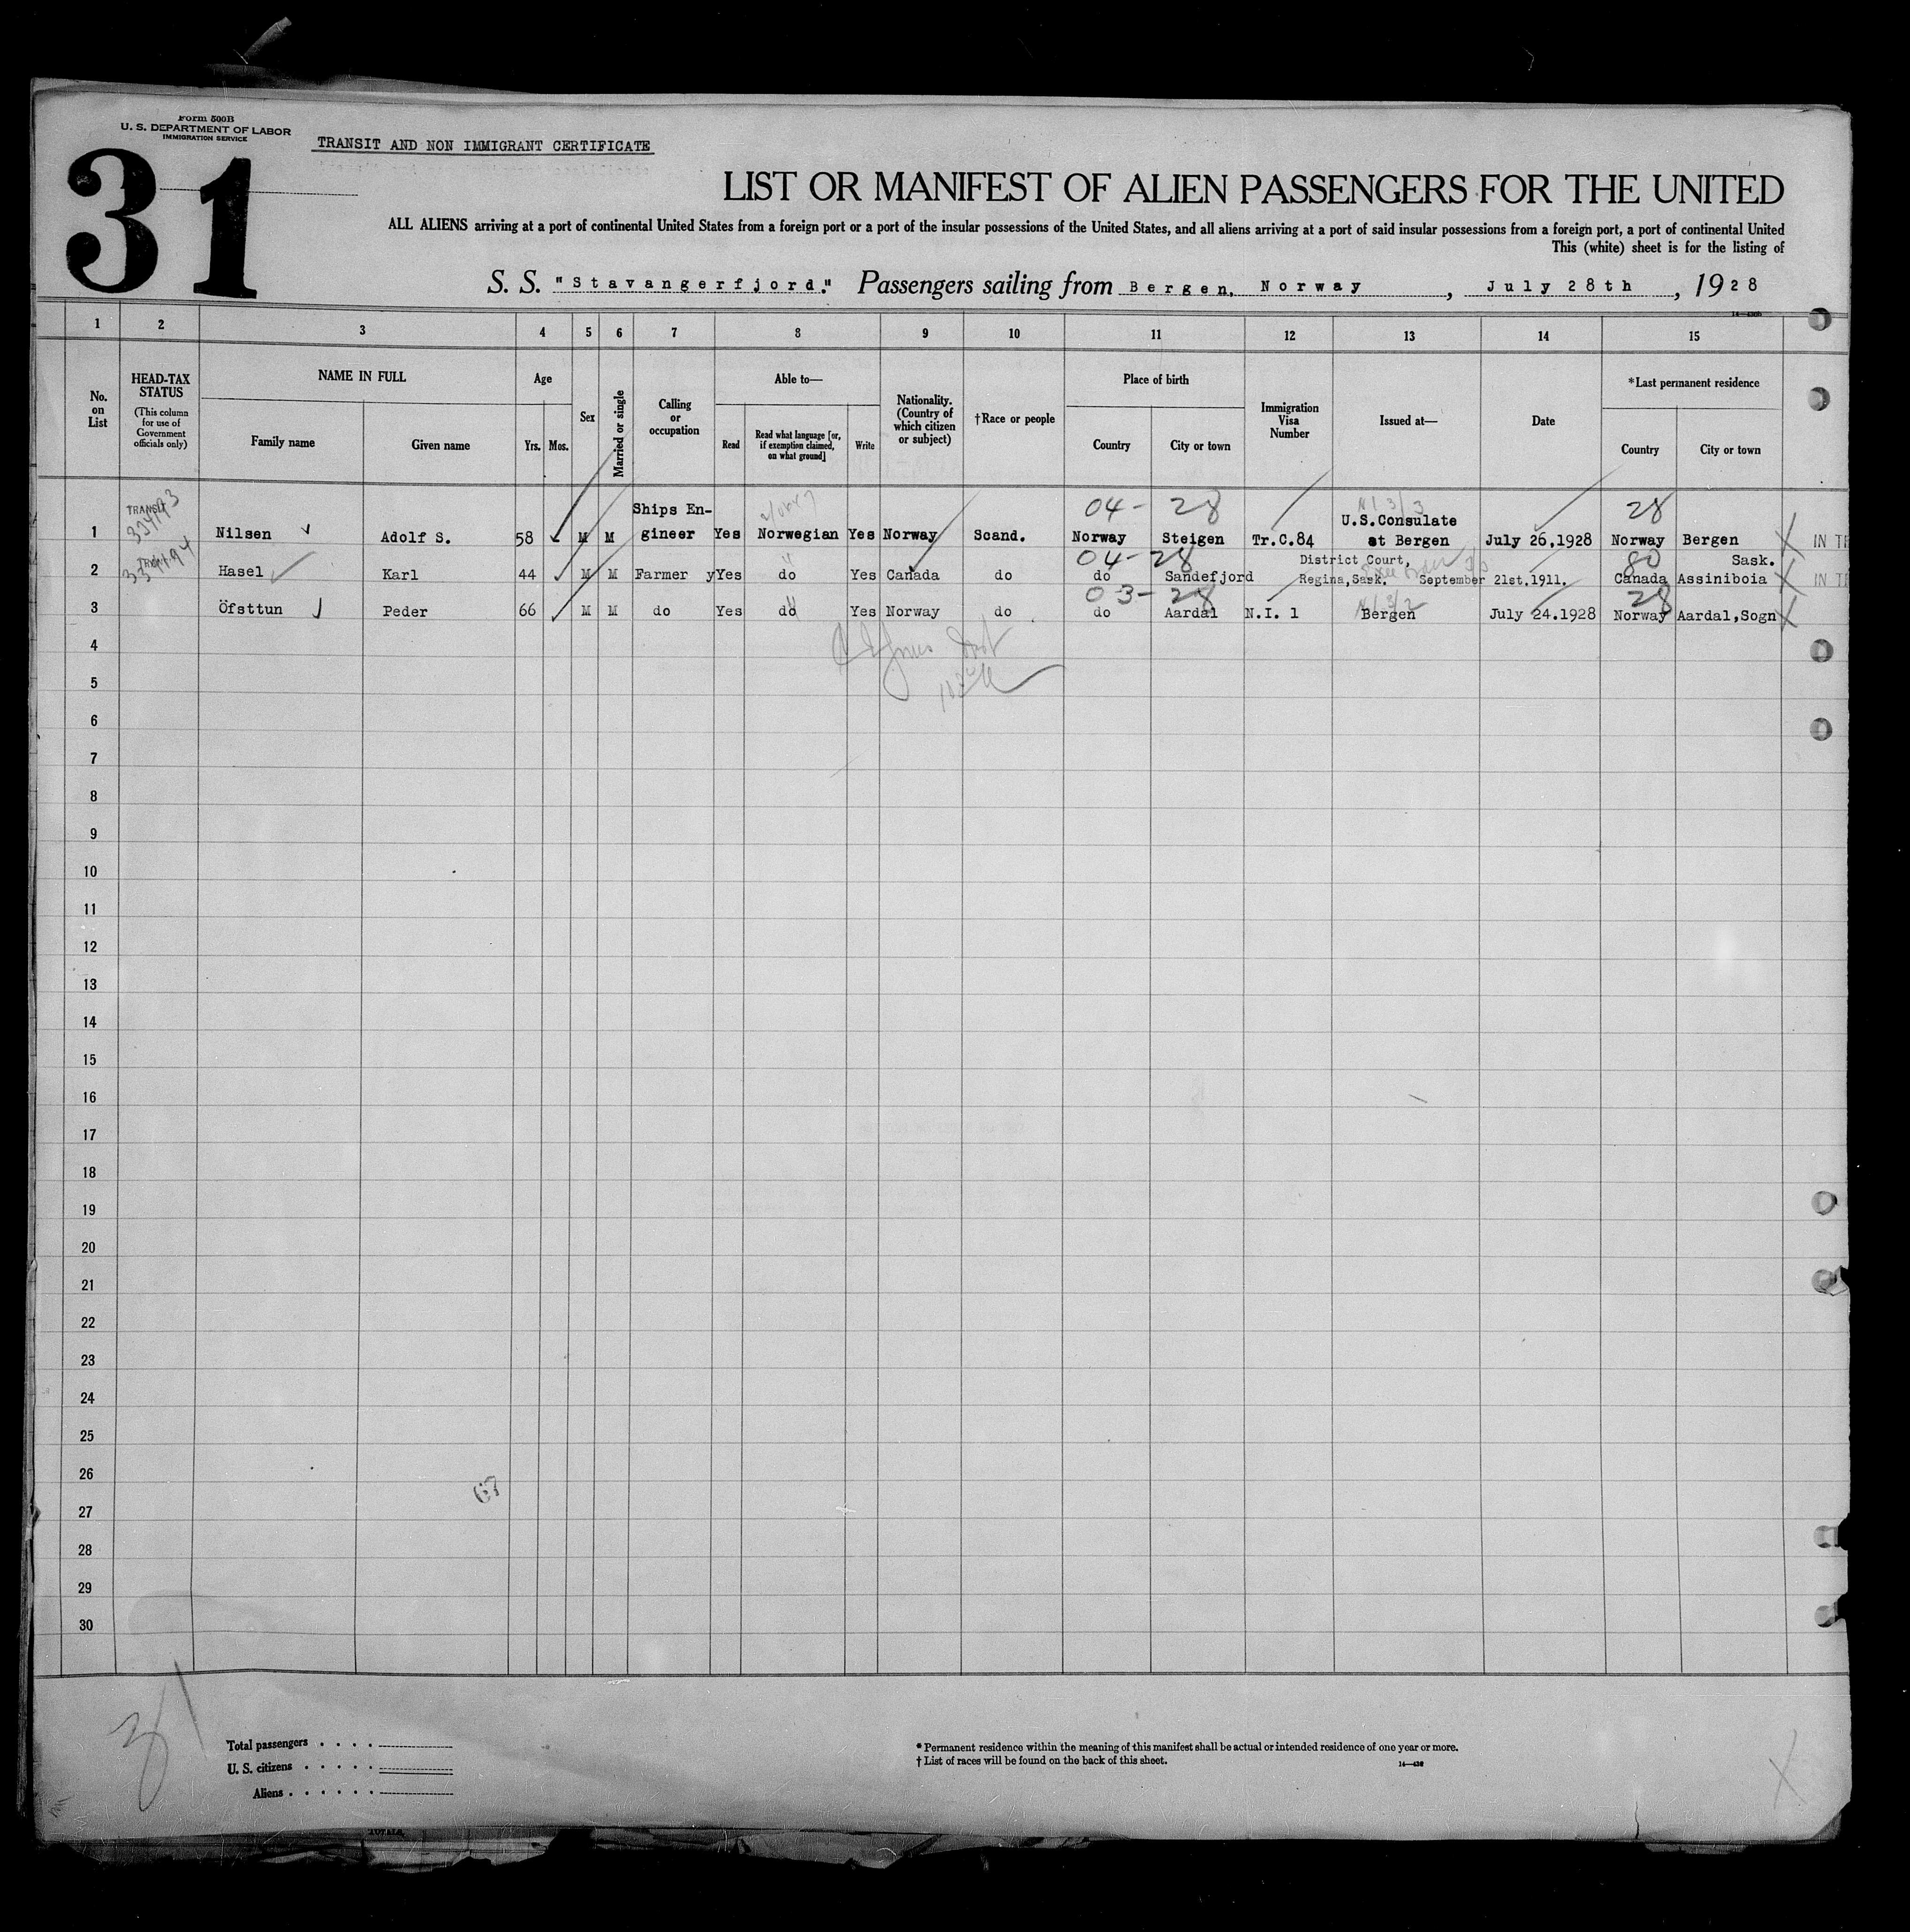 Form 500B
U. S. DEPARTMENT OF LABOR
IMMIGRATION SERVICE
TRANSIT AND NON IMMIGRANT CERTIFICATE
31
LIST OR MANIFEST OF ALIEN PASSENGERS FOR THE UNITED
ALL ALIENS arriving at a port of continental United States from a foreign port or a port of the insular possessions of the United States, and all aliens arriving at a port of said insular possessions from a foreign port, a port of continental United
This (white) sheet is for the listing of
S. S. "Stavangerfjord." Passengers sailing from Bergen, Norway, July 28th, 1928
1 2 3 4 5 6 7 8 9 10 11 12 13 14 15
No. on List
HEAD-TAX STATUS
(This column for use of Government officials only)
NAME IN FULL
Family name Given name
Age
Yrs. Mos.
Sex
Married or single
Calling or occupation
Able to—
Read Read what language [or, if exemption claimed, on what ground] Write
Nationality. (Country of which citizen or subject)
†Race or people
Place of birth
Country City or town
Immigration Visa Number
Issued at—
Date
*Last permanent residence
Country City or town
04- 28 28
1 TRANSIT 334193 Nilsen Adolf S. 58 M M Ships En-gineer Yes Norwegian Yes Norway Scand. Norway Steigen Tr.C.84 U.S.Consulate at Bergen July 26,1928 Norway Bergen IN TR
04-28 80
2 TRANSIT 334194 Hasel Karl 44 M M Farmer y Yes do Yes Canada do do Sandefjord District Court, Regina,Sask. September 21st.1911. Canada Assiniboia Sask. IN TR
03-28 28
3 Öfsttun Peder 66 M M do Yes do Yes Norway do do Aardal N.I. 1 Bergen July 24.1928 Norway Aardal,Sogn
4
5
6
7
8
9
10
11
12
13
14
15
16
17
18
19
20
21
22
23
24
25
26
27
28
29
30
31
Total passengers
U. S. citizens
Aliens
* Permanent residence within the meaning of this manifest shall be actual or intended residence of one year or more.
† List of races will be found on the back of this sheet.
TOTALS